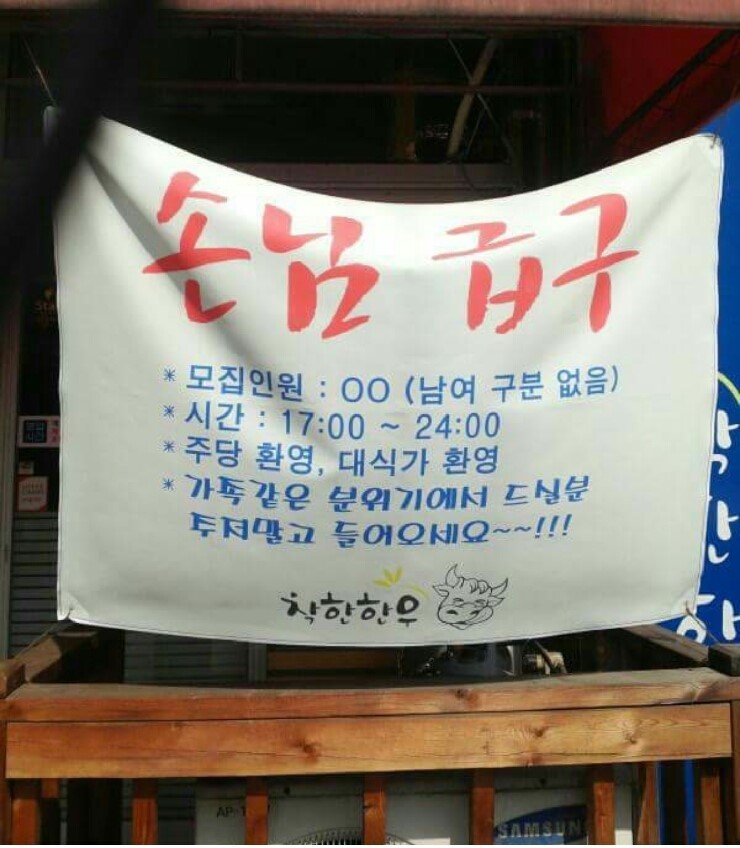 손님 급구
* 모집인원 : OO (남여 구분 없음)
* 시간 : 17:00 ~ 24:00
* 주당 환영, 대식가 환영
* 가족같은 분위기에서 드실분
주저말고 들어오세요~~!!!
착한한우
SAMSUN